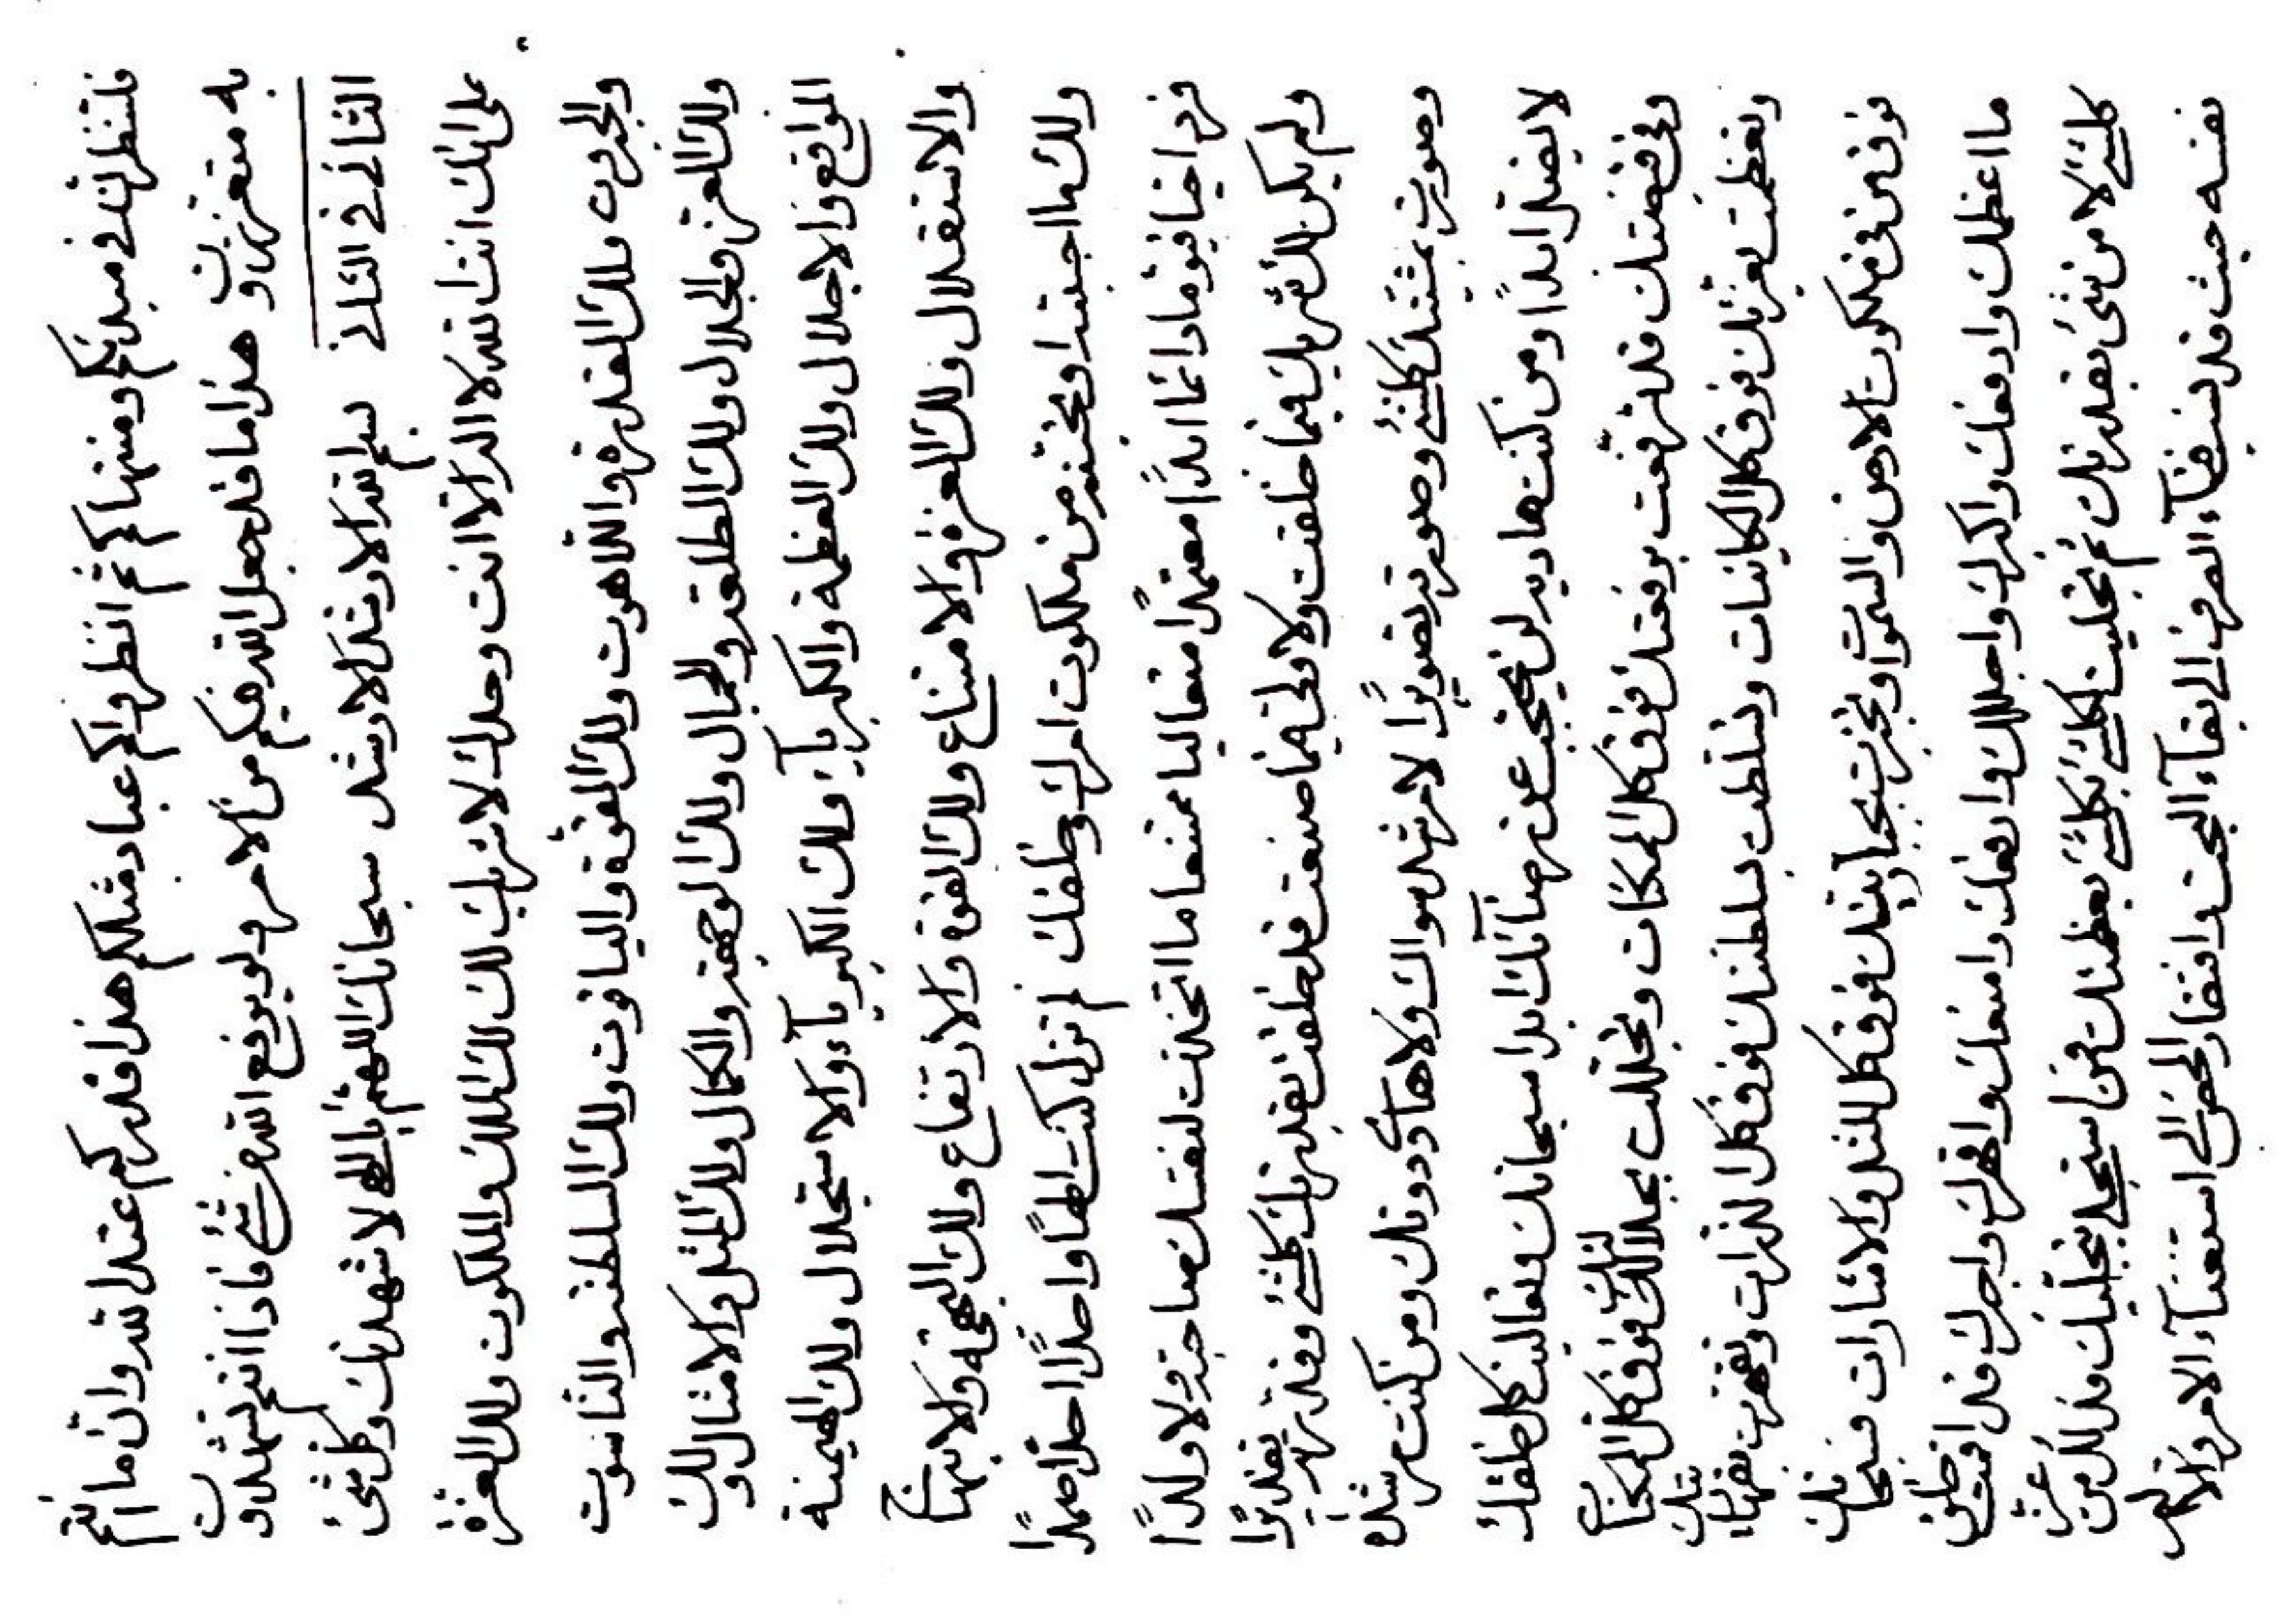 فلتنظرن في مبدئكم ومنتهاكم ثم انظروا كم عباد مثلكم هذا قدركم عند الله وان ما انتم
به متعززون وهذا ما قد جعل الله فيكم من الامر ولو يرفع الله من شئ فاذا انتم تشهدون
الثاني في الثاني بسم الله الاوحد الاوحد سبحانك اللهم يا الهي لاشهدنك وكل شئ
على انك انت الله لا اله الا انت وحدك لا شريك لك لك الملك والملكوت ولك العزة
والجبروت ولك القدرة واللاهوت ولك القوة والياقوت ولك السلطنة والناسوت
ولك العزة والجلال ولك الطلعة والجمال ولك الوجهة والكمال ولك المثل والامثال ولك
المواقع والاجلال ولك العظمة والكبرياء ولك الكبرياء والاستجلال ولك الهيمنة
والاستقلال ولك العزة والامتناع ولك القوة والارتفاع ولك البهجة والابتهاج
ولك ما احببته او تحبنه من ملكوت امرك وخلقك لم تزل كنت الها واحدا احدا صمدا
فردا حيا قيوما دائما ابدا معتمدا متعاليا ممتنعا ما اتخذت لنفسك صاحبة ولا ولدا
ولم يكن لك شريك فيما خلقت ولا ولي فيما صنعت قد خلقت بقدرتك كل شئ وقدرته تقديرا
وصورت بمشيتك كل شئ وصورته تصويرا لا مرشد سواك ولا هادي دونك ومن كنت مرشده
لا يضل ابدا ومن كنت هاديه لن يحتجب عن رضائك ابدا سبحانك وتعاليت كل خلقك
وفي قبضتك قد ترفعت برفعتك فوق كل الممكنات وتجللت بجلالتك فوق كل الممكنات
وتعظمت بعزتك فوق كل الكائنات وتسلطت بسلطنتك فوق كل الذرات وتقهرت بقهاريتك
فوق من في ملكوت الارض والسموات وتجبرت بجباريتك فوق كل المثل والاشارات فسبحانك
ما اعظمك وارفعك واكبرك واجللك وارفعك وامنعك واقهرك واجبرك قد اقمت خلق
كل شئ لا من شئ بقدرتك ثم تجليت لكل شئ بكل شئ بعظمتك فمن استجلى بتجليك فذلك من عز
نفسه حيث قد نسب فناء الصرف الى بقاء البحت وافتقار المحض الى استغناء الامر والا